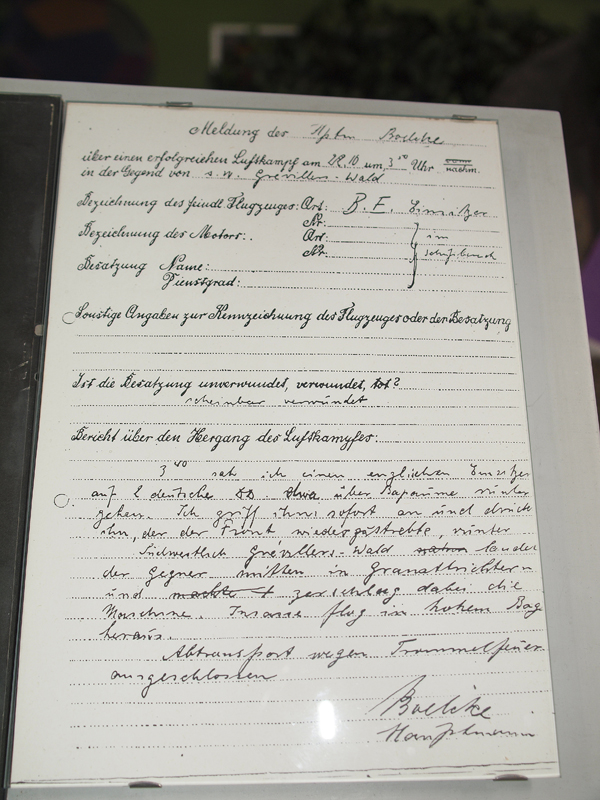 Meldung des Hptm Boelcke
über einen erfolgreichen Luftkampf am 22.10 um 3⁵⁰ Uhr vorm. nachm.
in der Gegend von s.w. Grévillers-Wald
Bezeichnung des feindl. Flugzeuges: Art: B.E. Einsitzer
Nr:
Bezeichnung des Motors: Art: im
Nr: schußbuch
Besatzung Name:
Dienstgrad:
Sonstige Angaben zur Kennzeichnung des Flugzeuges oder der Besatzung
Ist die Besatzung unverwundet, verwundet, tot?
scheinbar verwundet
Bericht über den Hergang des Luftkampfes:
3⁴⁰ sah ich einen englischen Einsitzer
auf 2 deutsche über Bapaume runter
gehen. Ich griff ihn sofort an und drück
ihn, der der Front wiederzustrebte, runter
Südwestlich Grévillers-Wald landet
der Gegner mitten in Granattrichtern
und machte zerschlug dabei die
Maschine. Insasse flog in hohem Bog
heraus.
Abtransport wegen Trommelfeuer
ausgeschlossen
Boelcke
Hauptmann